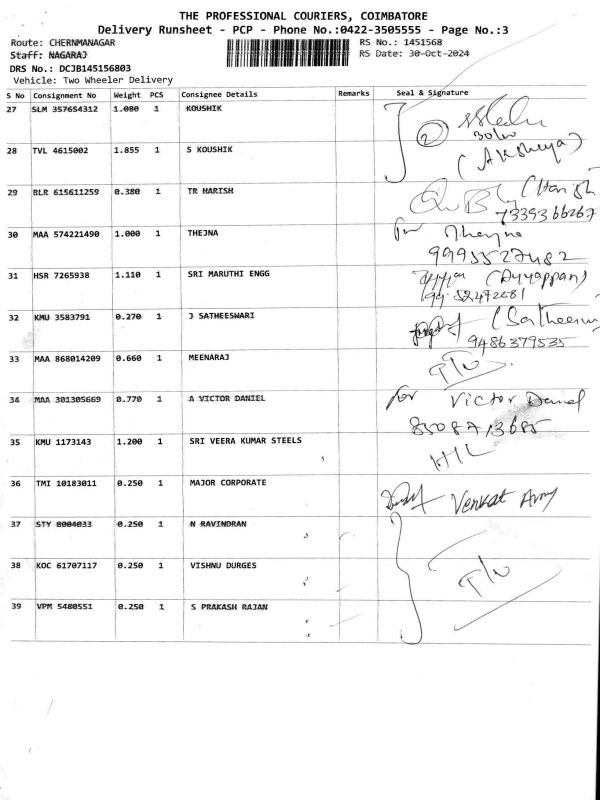 THE PROFESSIONAL COURIERS, COIMBATORE
Delivery Runsheet - PCP - Phone No.:0422-3505555 - Page No.:3
Route: CHERNMANAGAR RS No.: 1451568
Staff: NAGARAJ RS Date: 30-Oct-2024
DRS No.: DCJB145156803
Vehicle: Two Wheeler Delivery
S No Consignment No Weight PCS Consignee Details Remarks Seal & Signature
27 SLM 357654312 1.080 1 KOUSHIK
2
28 TVL 4615002 1.855 1 S KOUSHIK (Aksheya)
29 BLR 615611259 0.380 1 TR HARISH (Harish
7339366267
30 MAA 574221490 1.000 1 THEJNA for Thejna
9995527482
31 HSR 7265938 1.110 1 SRI MARUTHI ENGG (Ayyappan)
32 KMU 3583791 0.270 1 J SATHEESWARI
9486379535
33 MAA 868014209 0.660 1 MEENARAJ
34 MAA 301305669 0.770 1 A VICTOR DANIEL for Victor Daniel
8508713685
35 KMU 1173143 1.200 1 SRI VEERA KUMAR STEELS
36 TMI 10183011 0.250 1 MAJOR CORPORATE Venkat
37 STY 8004033 0.250 1 N RAVINDRAN
38 KOC 61707117 0.250 1 VISHNU DURGES
39 VPM 5480551 0.250 1 S PRAKASH RAJAN